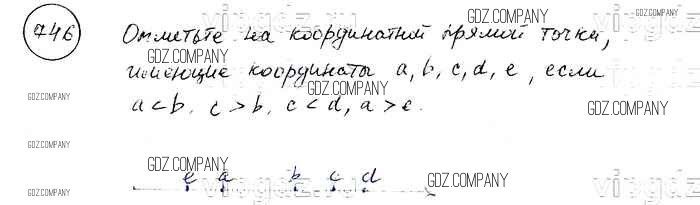 746 Отметьте на координатной прямой точки,
имеющие координаты a, b, c, d, e, если
a < b, c > b, c < d, a > e.
e a b c d
GDZ.COMPANY
GDZ.COMPANY
GDZ.COMPANY
GDZ.COMPANY
GDZ.COMPANY
GDZ.COMPANY
GDZ.COMPANY
GDZ.COMPANY
GDZ.COMPANY
GDZ.COMPANY